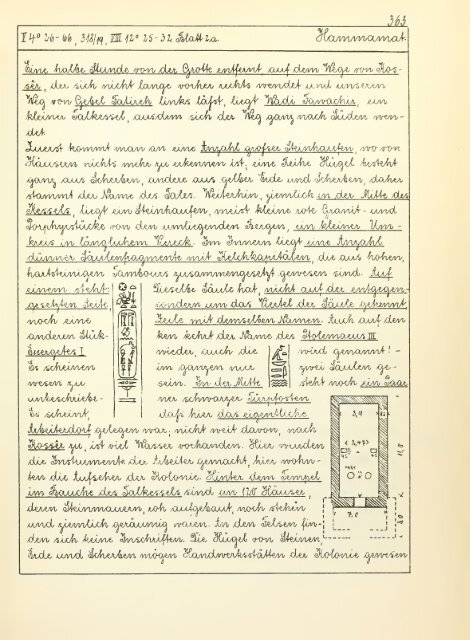 363
I 4° 26-66, 318/19, VIII 12° 25-32 Blatt 2a. Hammamat.
Eine halbe Stunde von der Grotte entfernt auf dem Wege von Kos-
sêr, der sich nicht lange vorher rechts wendet und unseren
Weg von Gebel Fatireh links läfst, liegt Wadi Fawachir, ein
kleiner Talkessel, aus dem sich der Weg ganz nach Süden wen-
det
Zuerst kommt man an eine Anzahl grofser Steinhaufen, wo von
Häusern nichts mehr zu erkennen ist; eine Reihe Hügel besteht
ganz aus Scherben, andere aus gelber Erde und Scherben, daher
stammt der Name des Tales. Weiterhin, ziemlich in der Mitte des
Kessels, liegt ein Steinhaufen, meist kleine rote Granit- und
Porphyrstücke von den umliegenden Bergen, ein kleiner Um-
kreis in länglichem Viereck. Im Innern liegt eine Anzahl
dünner Säulenfragmente mit Kelchkapitälen, die aus hohen,
hartsteinigen Tambours zusammengesetzt gewesen sind. Auf
einem steht: Dieselbe Säule hat, nicht auf der entgegen-
gesetzten Seite, sondern um das Viertel der Säule getrennt,
noch eine Zeile mit demselben Namen. Auch auf den
anderen Stük- ken kehrt der Name des Ptolemaeus III
Euergetes I wieder, auch die wird genannt! -
Es scheinen im ganzen nur zwei Säulen ge-
wesen zu sein. In der Mitte steht noch ein Paar
unbeschriebe- ner schwarzer Türpfosten
Es scheint, dafs hier das eigentliche
Arbeiterdorf gelegen war; nicht weit davon, nach
Kossêr zu, ist viel Wasser vorhanden. Hier wurden
die Instrumente der Arbeiter gemacht, hier wohn-
ten die Aufseher der Kolonie. Hinter dem Tempel
im Bauche des Talkessels sind an 120 Häuser,
deren Steinmauern, roh aufgebaut, noch stehen
und ziemlich geräumig waren. In den Felsen fin-
den sich keine Inschriften. Die Hügel von Steinen,
Erde und Scherben mögen Handwerksstätten der Kolonie gewesen
3,9
7,0